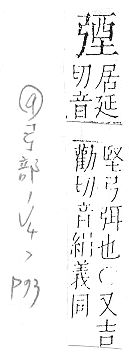 居延
切音
堅弓弭也○又吉
勸切音絹義同
⑨弓部
P93